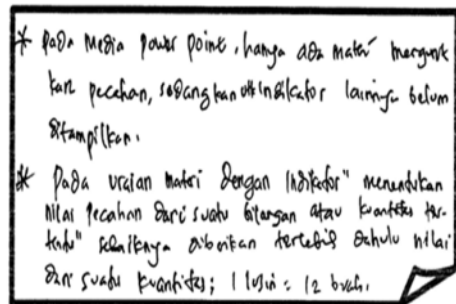 * Pada Media power point, hanya ada materi mengurut
kan pecahan, sedangkan utk indikator lainnya belum
ditampilkan.
* Pada uraian materi dengan indikator "menentukan
nilai pecahan dari suatu bilangan atau kuantitas ter-
tentu" sebaiknya diberikan terlebih dahulu nilai
dari suatu kuantitas; 1 lusin = 12 buah.